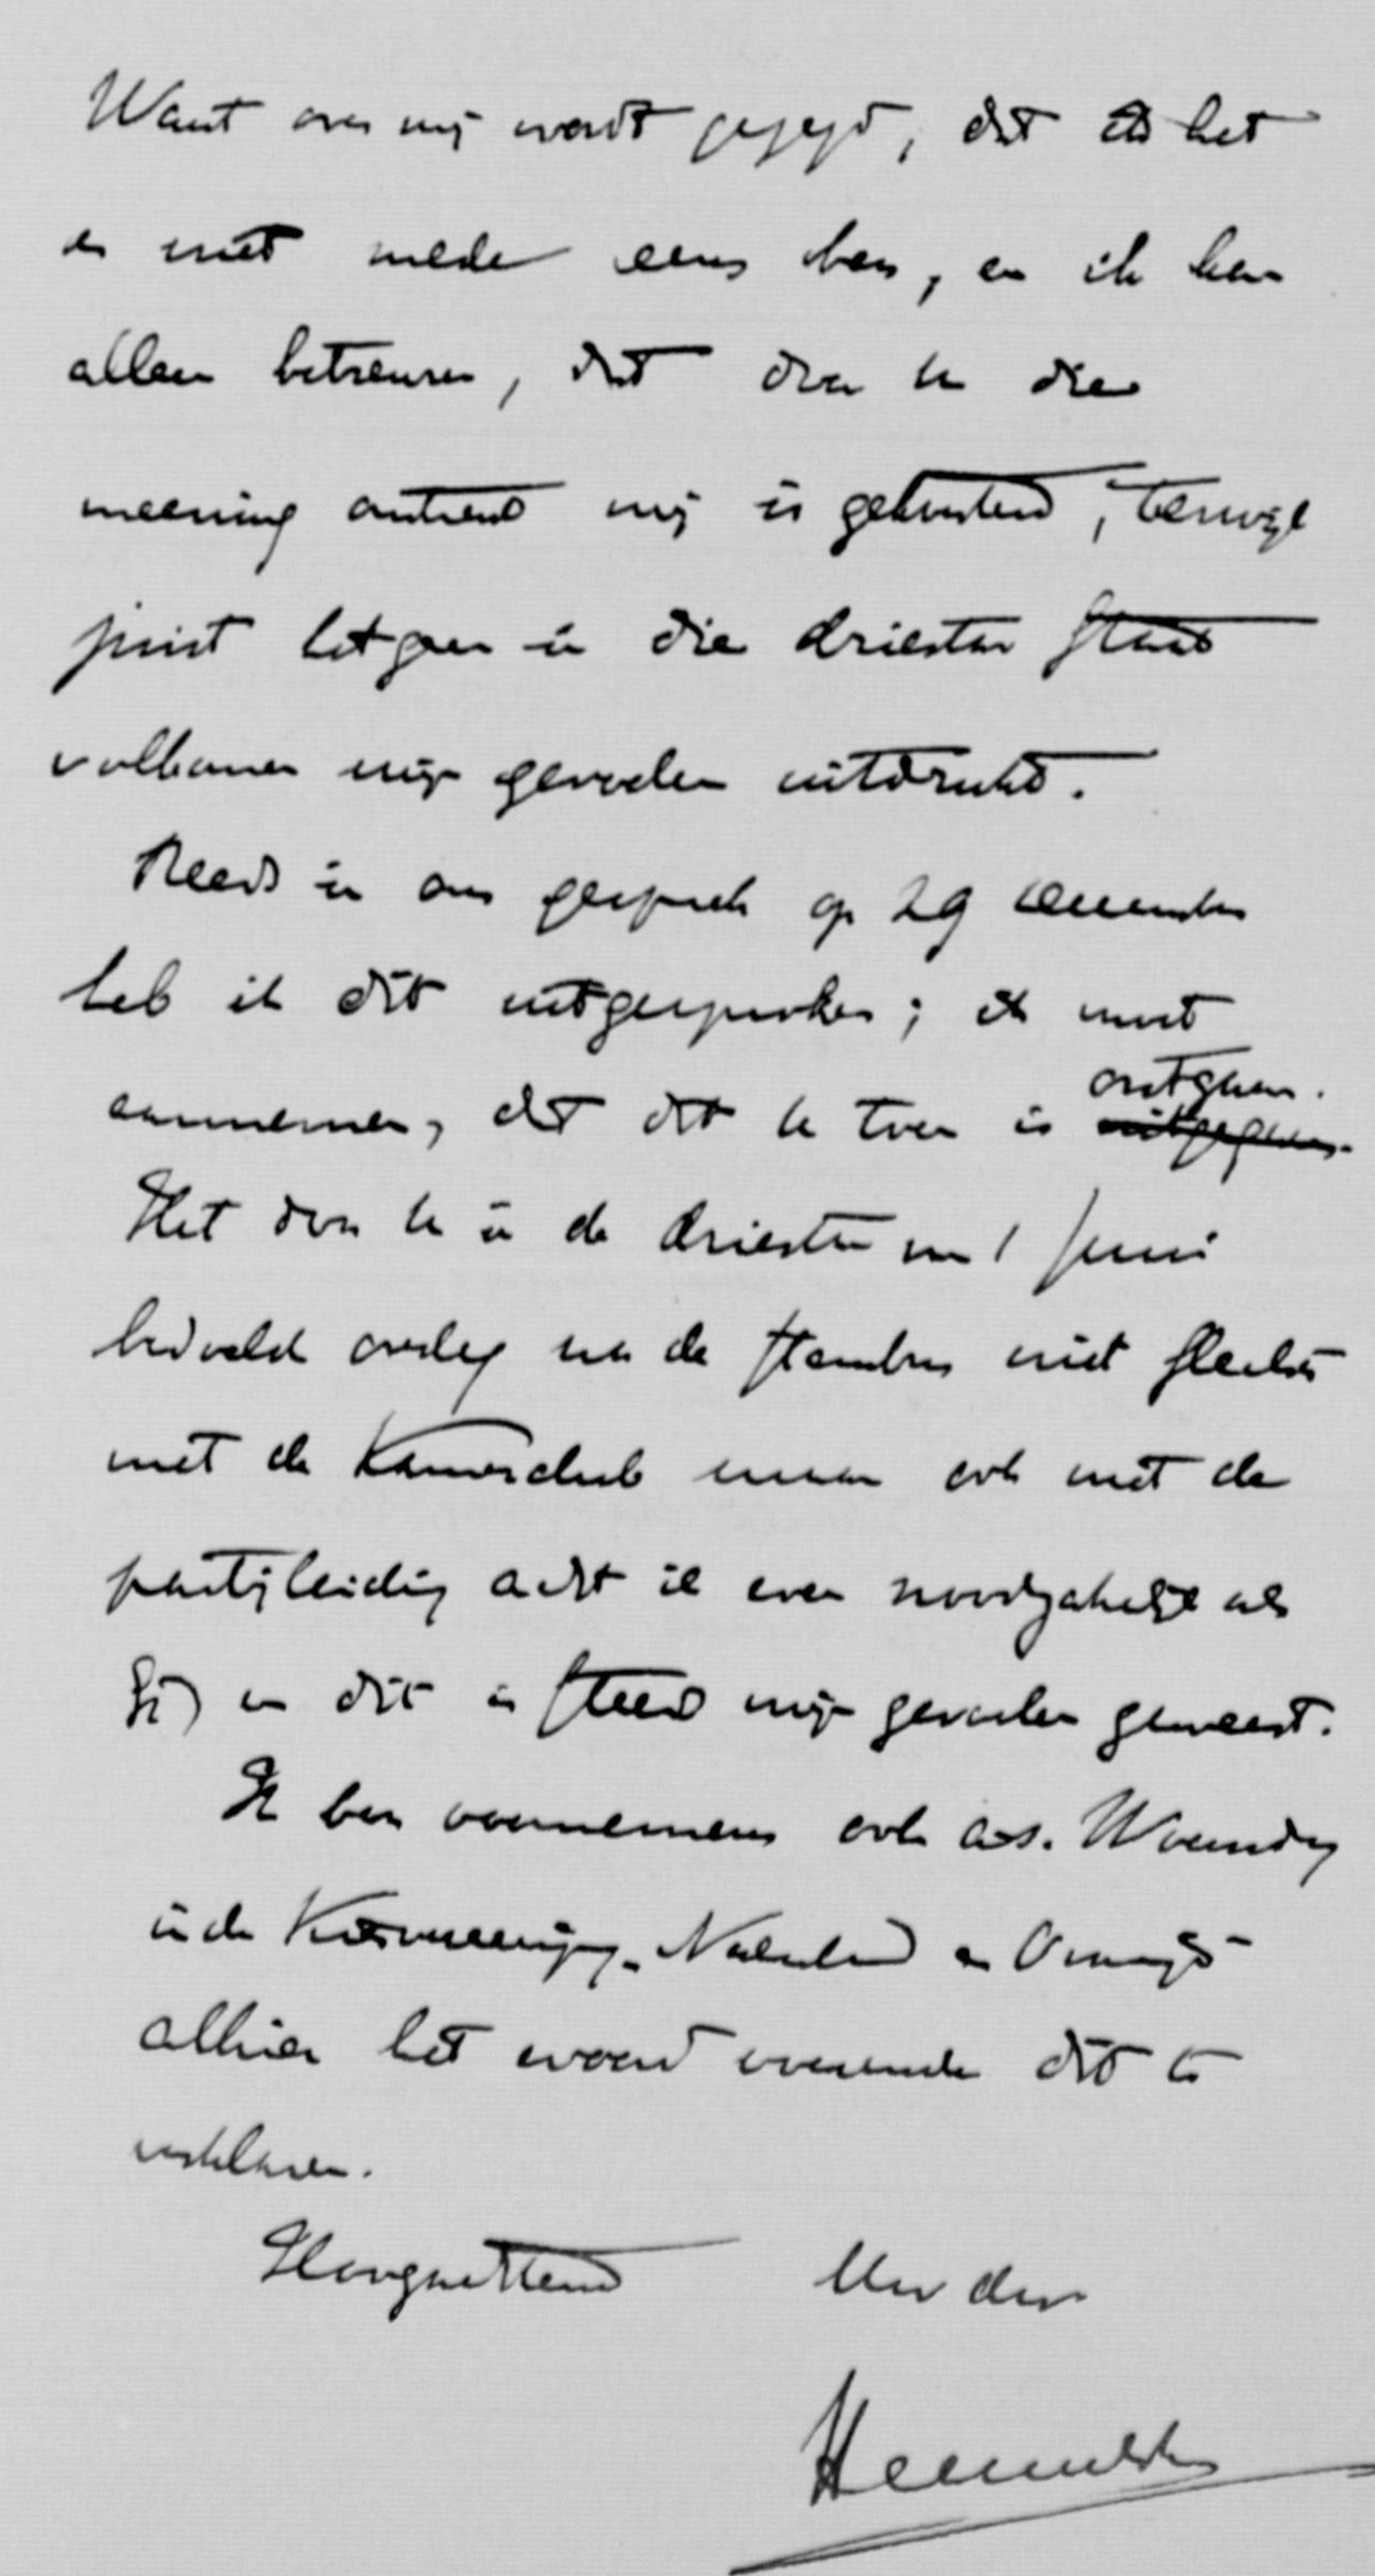 Want over mij wordt gezegd, dat ik het
er niet mede eens ben, en ik kan
alleen betreuren, dat door U die
meening omtrent mij is gekoesterd, terwijl
juist hetgeen in die driestar staat
volkomen mijn gevoelen uitdrukt.
Reeds in ons gesprek op 29 december
heb ik dit uitgesproken; ik moet
aannemen, dat dit U toen is ontgaan.
Het door U in de driestar van 1 Juni
bedoeld overleg na de stembus niet slechts
met de Kamerclub maar ook met de
partijleiding acht ik even noodzakelijk als
Gij en dit is steeds mijn gevoelen geweest.
Ik ben voornemens ook a.s. Woensdag
in de Kiesvereeniging Nederland en Oranje
alhier het woord voerende dit te
verklaren.
Hoogachtend Uw dw
Heemskerk